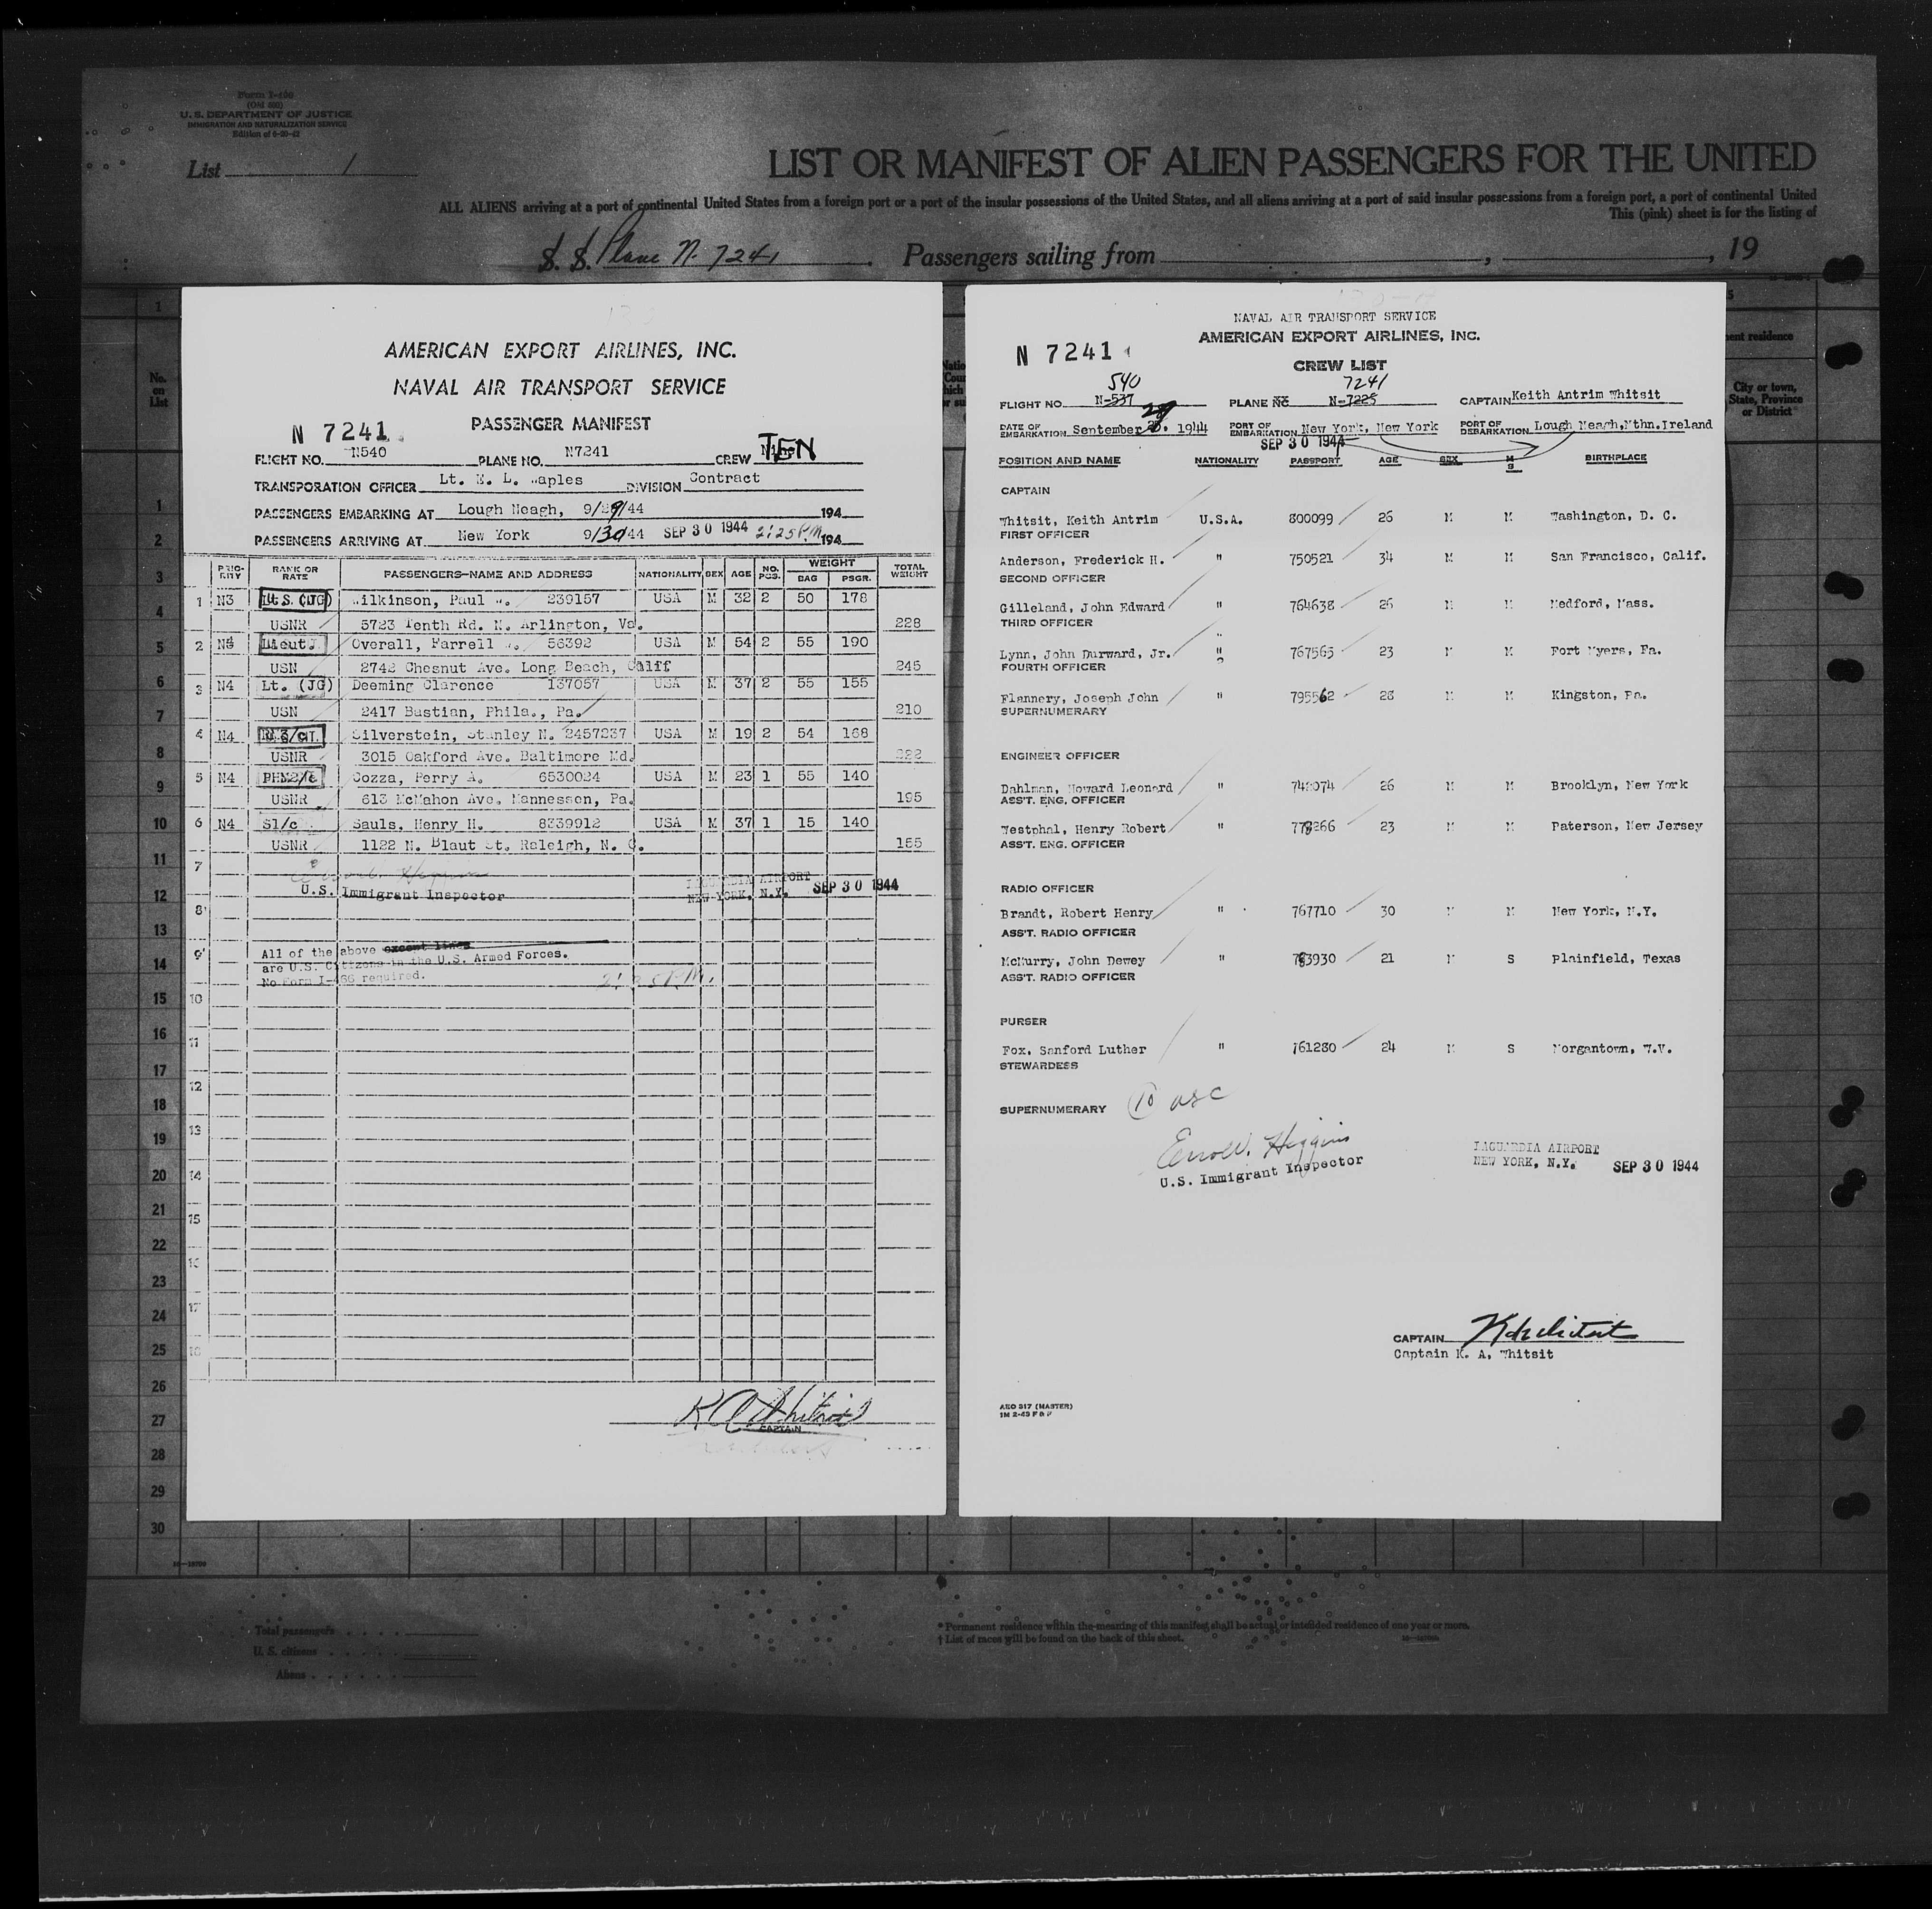 Form I-400
U. S. DEPARTMENT OF JUSTICE
IMMIGRATION AND NATURALIZATION SERVICE
Edition of 6-20-42
List 1
LIST OR MANIFEST OF ALIEN PASSENGERS FOR THE UNITED
ALL ALIENS arriving at a port of continental United States from a foreign port or a port of the insular possessions of the United States, and all aliens arriving at a port of said insular possessions from a foreign port, a port of continental United
This (pink) sheet is for the listing of
S. S. Plane N. 7241 Passengers sailing from , , 19
AMERICAN EXPORT AIRLINES, INC.
NAVAL AIR TRANSPORT SERVICE
PASSENGER MANIFEST
N 7241
FLIGHT NO. N540 PLANE NO. N7241 CREW Nine TEN
TRANSPORATION OFFICER Lt. E. L. Waples DIVISION Contract
PASSENGERS EMBARKING AT Lough Neagh, 9/29/44 194
PASSENGERS ARRIVING AT New York 9/30/44 SEP 30 1944 2:25 P.M. 194
PRIORITY RANK OR RATE PASSENGERS-NAME AND ADDRESS NATIONALITY SEX AGE NO. PCS. WEIGHT BAG PSGR. TOTAL WEIGHT
1 N3 Lt. (JG) Wilkinson, Paul W. 239157 USA M 32 2 50 178
USNR 5723 Tenth Rd. N. Arlington, Va. 228
2 N4 Lieut. Overall, Farrell W. 56392 USA M 54 2 55 190
USN 2742 Chesnut Ave. Long Beach, Califf 245
3 N4 Lt. (JG) Deeming Clarence 137057 USA M 37 2 55 155
USN 2417 Bustian, Phila., Pa. 210
4 N4 Silverstein, Stanley N. 2457237 USA M 19 2 54 168
USNR 3015 Oakford Ave. Baltimore Md. 222
5 N4 PHM2/c Cozza, Perry A. 6530024 USA M 23 1 55 140
USNR 613 McMahon Ave. Monnessen, Pa. 195
6 N4 S1/c Sauls, Henry H. 8339912 USA M 37 1 15 140
USNR 1122 N. Blaut St. Raleigh, N. C. 155
7
U.S. Immigrant Inspector
LAGUARDIA AIRPORT
NEW YORK, N.Y. SEP 30 1944
8
9
All of the above except lines
are U.S. Citizens in the U.S. Armed Forces.
No Form I-466 required.
2:25 P.M.
10
11
12
13
14
15
16
17
18
K A Whitsit
CAPTAIN
NAVAL AIR TRANSPORT SERVICE
AMERICAN EXPORT AIRLINES, INC.
N 7241
CREW LIST
540 7241
FLIGHT NO. N-537 PLANE NO. N-7225 CAPTAIN Keith Antrim Whitsit
DATE OF EMBARKATION September 29. 1944 PORT OF EMBARKATION New York, New York PORT OF DEBARKATION Lough Neagh, Nthn. Ireland
SEP 30 1944
POSITION AND NAME NATIONALITY PASSPORT AGE SEX M S BIRTHPLACE
CAPTAIN
Whitsit, Keith Antrim U.S.A. 800099 26 M M Washington, D. C.
FIRST OFFICER
Anderson, Frederick H. " 750521 34 M M San Francisco, Calif.
SECOND OFFICER
Gilleland, John Edward " 764638 26 M M Medford, Mass.
THIRD OFFICER
Lynn, John Durward, Jr. " 767565 23 M M Fort Myers, Fa.
FOURTH OFFICER
Flannery, Joseph John " 795562 28 M M Kingston, Pa.
SUPERNUMERARY
ENGINEER OFFICER
Dahlman, Howard Leonard " 26 M M Brooklyn, New York
ASS'T. ENG. OFFICER
Westphal, Henry Robert " 23 M M Paterson, New Jersey
ASS'T. ENG. OFFICER
RADIO OFFICER
Brandt, Robert Henry " 767710 30 M M New York, N.Y.
ASS'T. RADIO OFFICER
McMurry, John Dewey " 21 M S Plainfield, Texas
ASS'T. RADIO OFFICER
PURSER
Fox, Sanford Luther " 761280 24 M S Morgantown, W.V.
STEWARDESS
SUPERNUMERARY 10 usc
Errol W. Higgins
U.S. Immigrant Inspector
LAGUARDIA AIRPORT
NEW YORK, N.Y. SEP 30 1944
CAPTAIN K A Whitsit
Captain K. A. Whitsit
AEO 317 (MASTER)
1M 2-43 F & P
No. on List
1
2
3
4
5
6
7
8
9
10
11
12
13
14
15
16
17
18
19
20
21
22
23
24
25
26
27
28
29
30
ent residence
City or town, State, Province or District
Total passengers
U. S. citizens
Aliens
* Permanent residence within the meaning of this manifest shall be actual or intended residence of one year or more.
† List of races will be found on the back of this sheet.